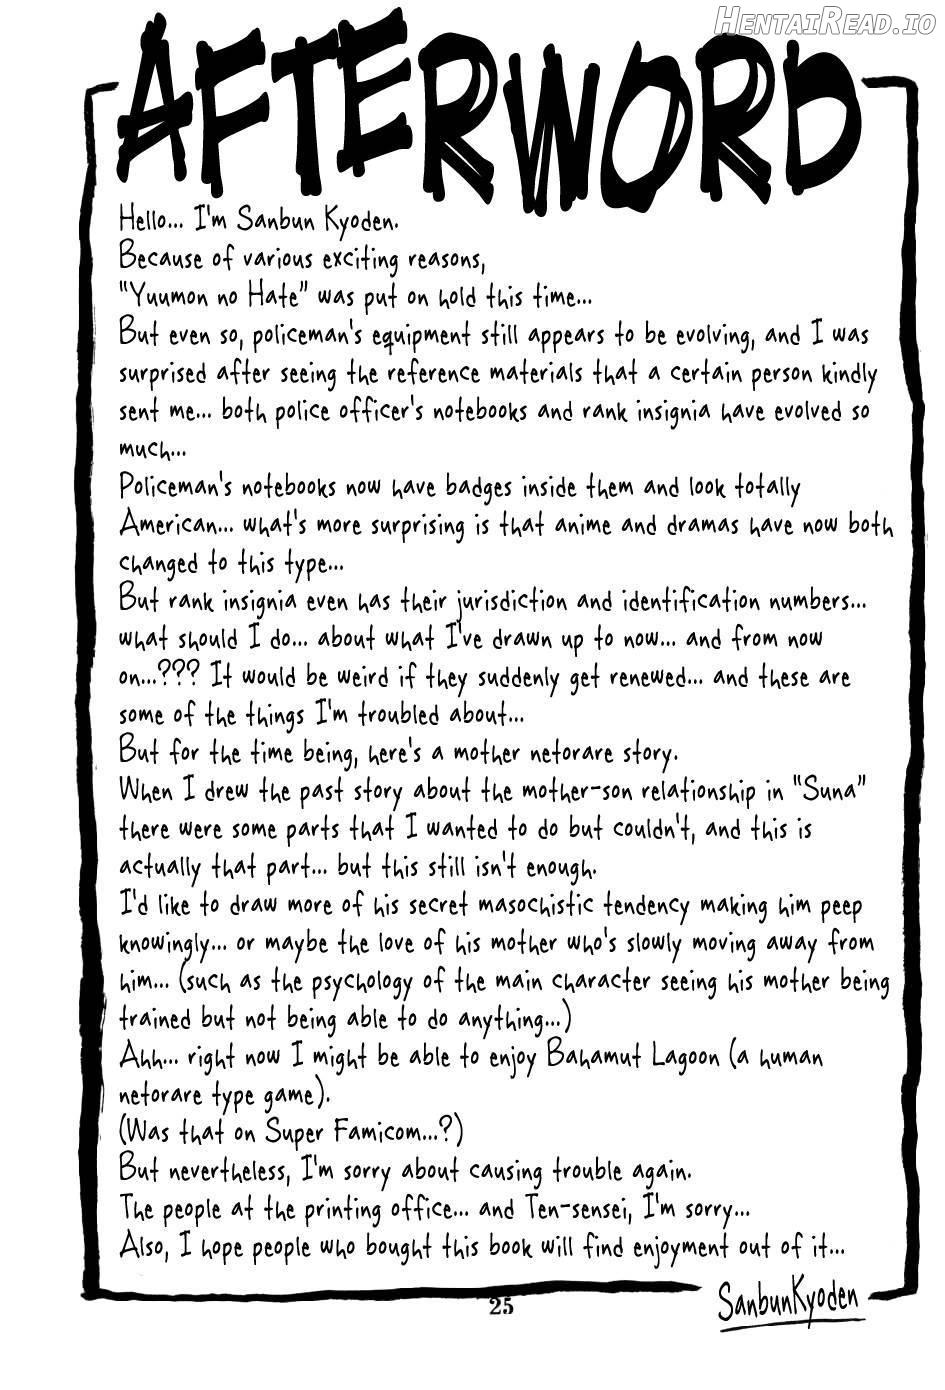 HENTAIREAD.IO
AFTERWORD
Hello... I'm Sanbun Kyoden.
Because of various exciting reasons,
"Yuumon no Hate" was put on hold this time...
But even so, policeman's equipment still appears to be evolving, and I was
surprised after seeing the reference materials that a certain person kindly
sent me... both police officer's notebooks and rank insignia have evolved so
much...
Policeman's notebooks now have badges inside them and look totally
American... what's more surprising is that anime and dramas have now both
changed to this type...
But rank insignia even has their jurisdiction and identification numbers...
what should I do... about what I've drawn up to now... and from now
on...??? It would be weird if they suddenly get renewed... and these are
some of the things I'm troubled about...
But for the time being, here's a mother netorare story.
When I drew the past story about the mother-son relationship in "Suna"
there were some parts that I wanted to do but couldn't, and this is
actually that part... but this still isn't enough.
I'd like to draw more of his secret masochistic tendency making him peep
knowingly... or maybe the love of his mother who's slowly moving away from
him... (such as the psychology of the main character seeing his mother being
trained but not being able to do anything...)
Ahh... right now I might be able to enjoy Bahamut Lagoon (a human
netorare type game).
(Was that on Super Famicom...?)
But nevertheless, I'm sorry about causing trouble again.
The people at the printing office... and Ten-sensei, I'm sorry...
Also, I hope people who bought this book will find enjoyment out of it...
SanbunKyoden
25